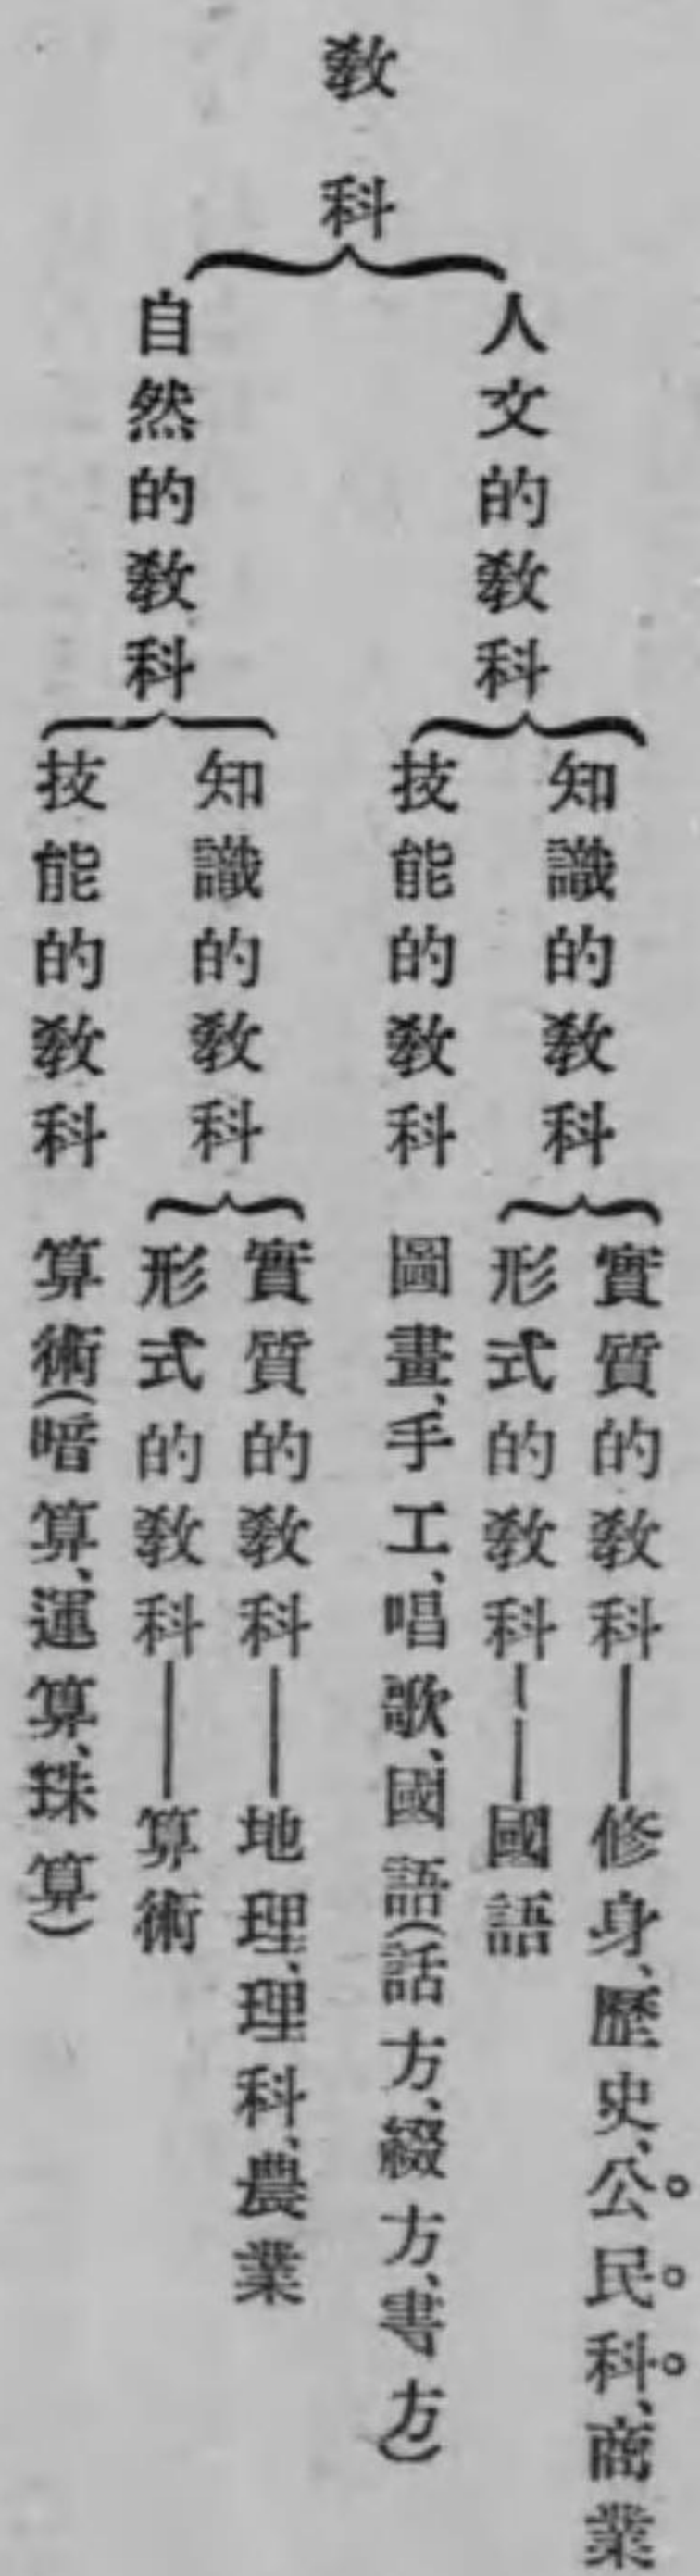 敎科
人文的敎科
知識的敎科
實質的敎科――修身、歷史、公民科、商業
形式的敎科――國語
技能的敎科 圖畫、手工、唱歌、國語(話方、綴方、書方)
自然的敎科
知識的敎科
實質的敎科――地理、理科、農業
形式的敎科――算術
技能的敎科 算術(暗算、運算、珠算)